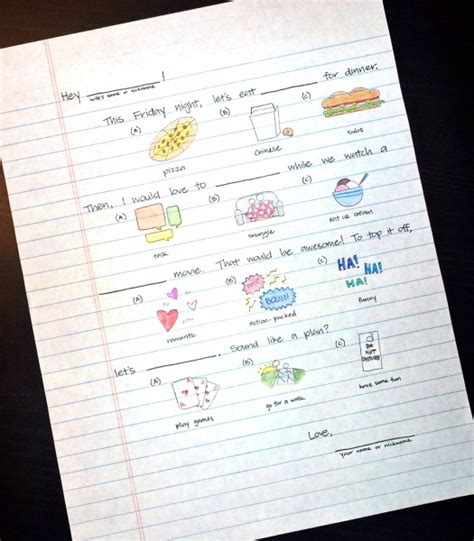 Hey ________!
wife's name or nickname
This Friday night, let's eat ________ for dinner.
(A) (B) (C)
pizza Chinese subs
Then, I would love to ________ while we watch a
(A) (B) (C)
talk snuggle eat ice cream
________ movie. That would be awesome! To top it off,
(A) (B) (C)
BOOM! HA! HA! HA!
romantic action-packed funny
let's ________. Sound like a plan?
(A) (B) (C)
DO NOT DISTURB
play games go for a walk have some fun
Love,
________
your name or nickname